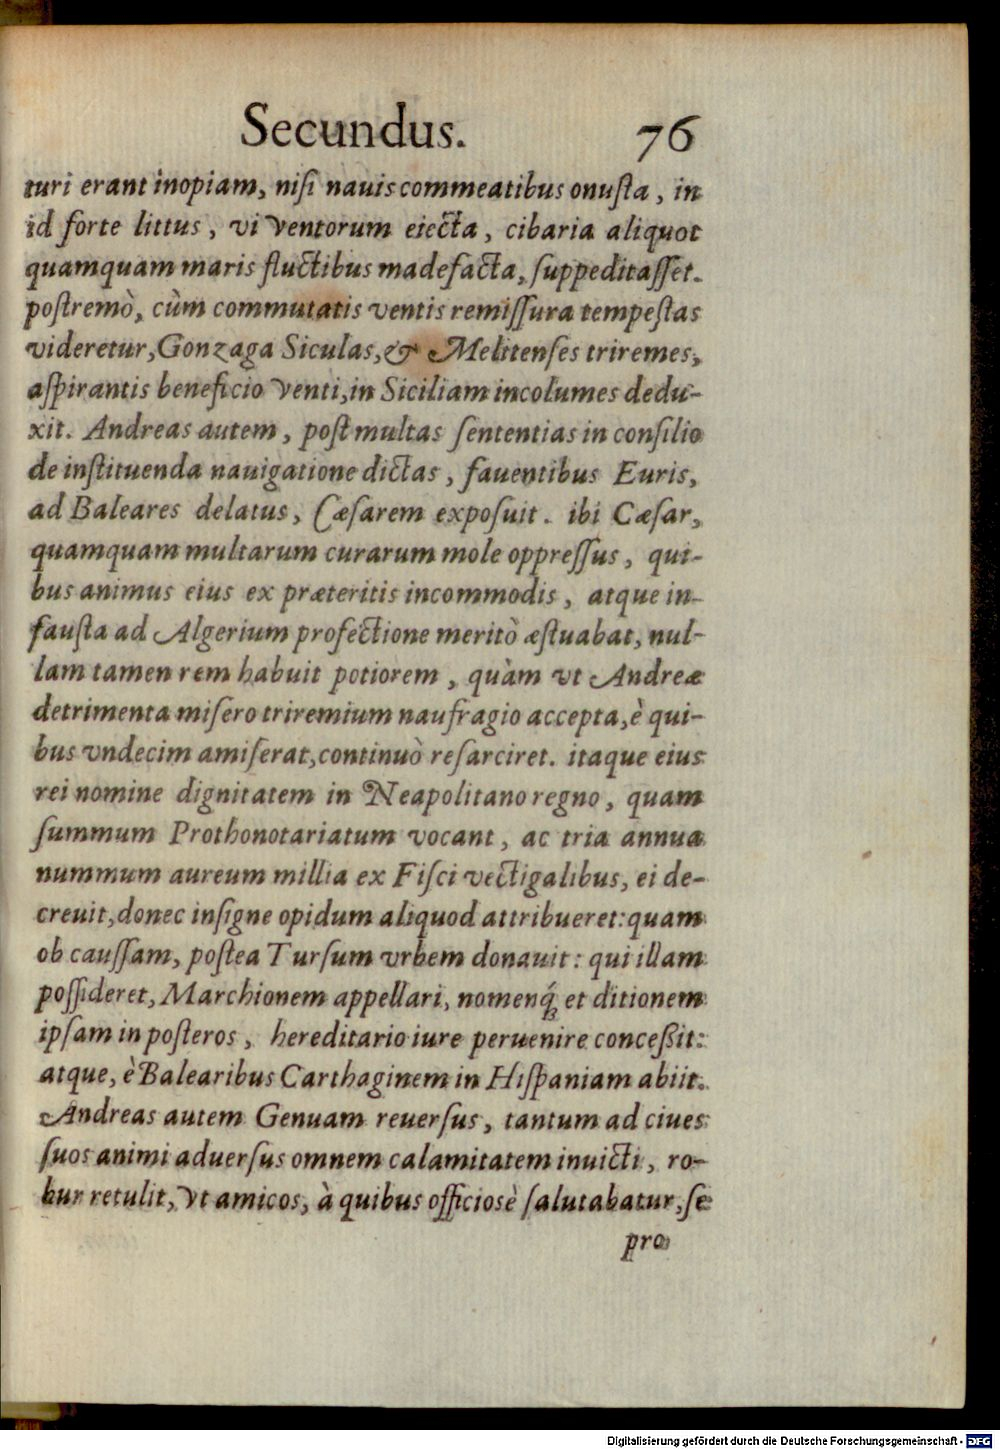 Secundus. 76
turi erant inopiam, nisi nauis commeatibus onusta, in
id forte littus, vi ventorum eiecta, cibaria aliquot
quamquam maris fluctibus madefacta, suppeditasset.
postremò, cùm commutatis ventis remissura tempestas
videretur, Gonzaga Siculas, & Melitenses triremes,
aspirantis beneficio venti, in Siciliam incolumes dedu-
xit. Andreas autem, post multas sententias in consilio
de instituenda nauigatione dictas, fauentibus Euris,
ad Baleares delatus, Cæsarem exposuit. ibi Cæsar,
quamquam multarum curarum mole oppressus, qui-
bus animus eius ex præteritis incommodis, atque in-
fausta ad Algerium profectione meritò æstuabat, nul-
lam tamen rem habuit potiorem, quàm vt Andreæ
detrimenta misero triremium naufragio accepta, è qui-
bus vndecim amiserat, continuò resarciret. itaque eius
rei nomine dignitatem in Neapolitano regno, quam
summum Prothonotariatum vocant, ac tria annua
nummum aureum millia ex Fisci vectigalibus, ei de-
creuit, donec insigne opidum aliquod attribueret: quam
ob caussam, postea Tursum vrbem donauit: qui illam
possideret, Marchionem appellari, nomenq́; et ditionem
ipsam in posteros, hereditario iure peruenire conceßit:
atque, è Balearibus Carthaginem in Hispaniam abiit.
Andreas autem Genuam reuersus, tantum ad ciues
suos animi aduersus omnem calamitatem inuicti, ro-
bur retulit, vt amicos, à quibus officiosè salutabatur, se
pro
Digitalisierung gefördert durch die Deutsche Forschungsgemeinschaft - DFG